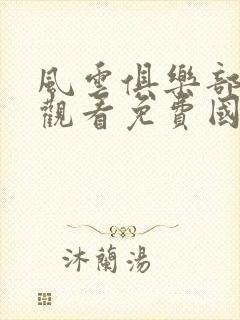 風雲俱樂部
觀看免費國
沐蘭湯